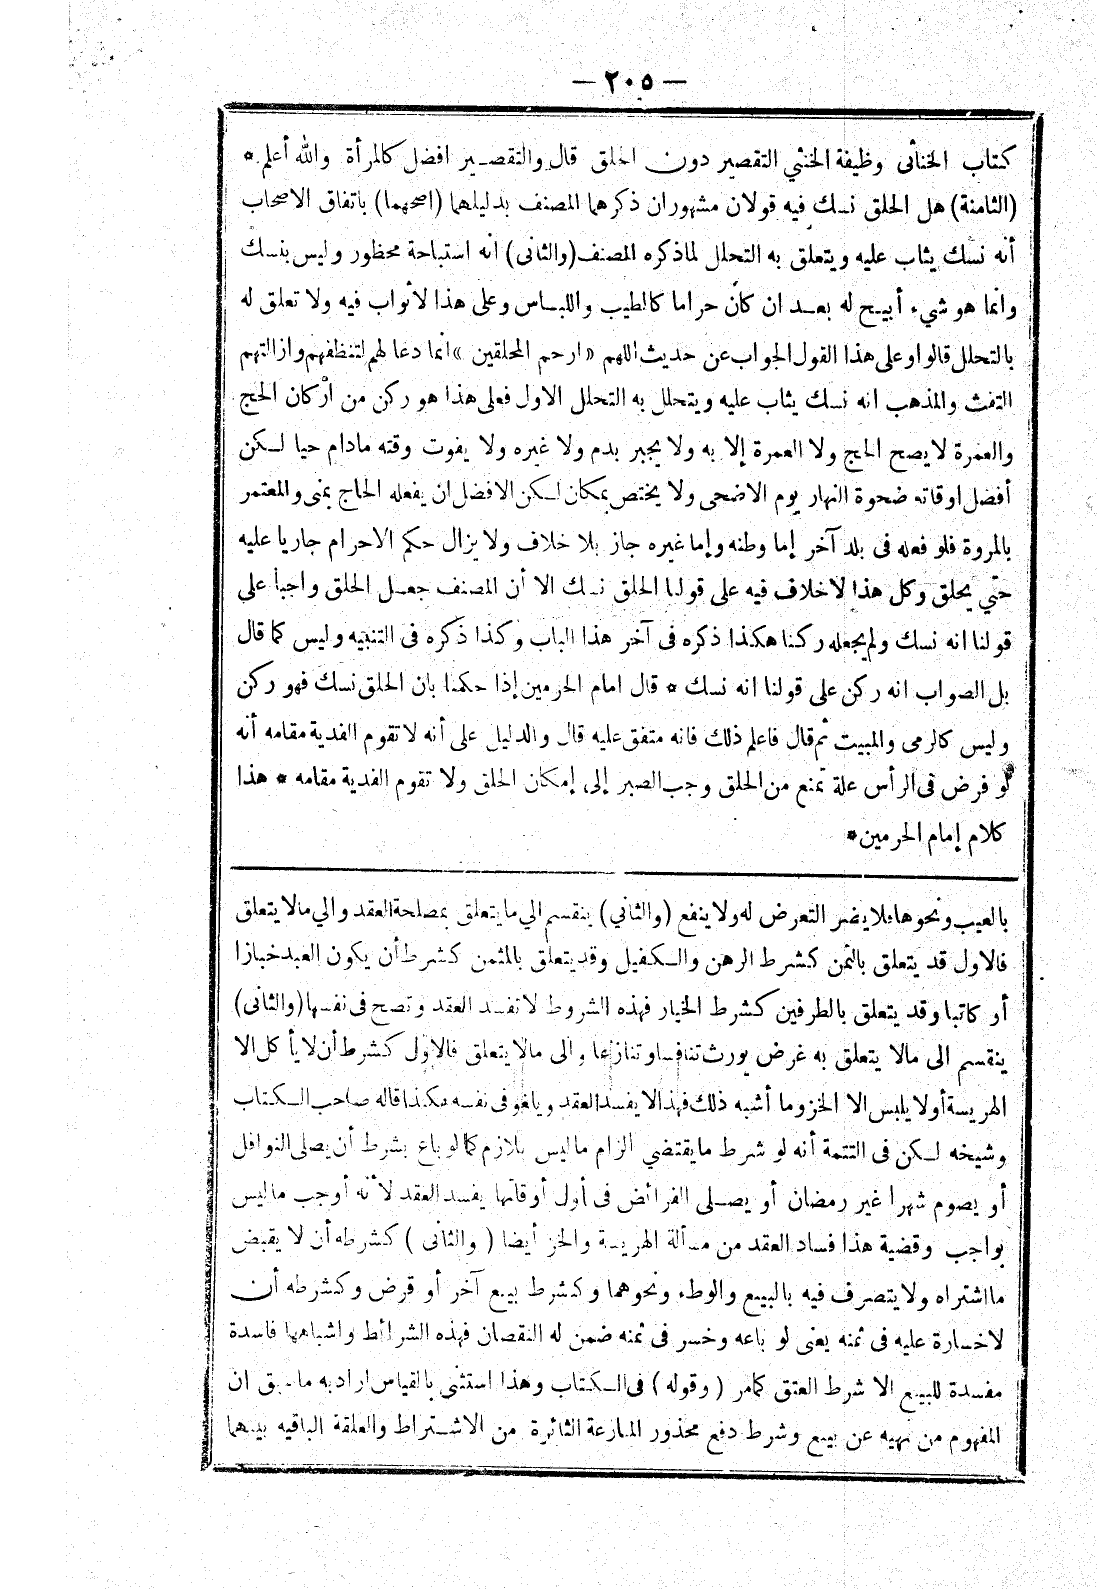 — ٢٠٥ —
كتاب الخناثى وظيفة الخنثي التقصير دون الحلق قال والتقصير افضل كالمرأة والله أعلم *
(الثامنة) هل الحلق نسك فيه قولان مشهوران ذكرهما المصنف بدليلهما (اصحهما) باتفاق الاصحاب
أنه نسك يثاب عليه ويتعلق به التحلل لما ذكره المصنف (والثانى) انه استباحة محظور وليس بنسك
وانما هو شيء أبيح له بعد ان كان حراما كالطيب واللباس وعلى هذا لاثواب فيه ولا تعلق له
بالتحلل قالوا وعلى هذا القول الجواب عن حديث اللهم «ارحم المحلقين» انما دعا لهم لتنظفهم وازالتهم
التفث والمذهب انه نسك يثاب عليه ويتحلل به التحلل الاول فعلى هذا هو ركن من أركان الحج
والعمرة لا يصح الحج ولا العمرة إلا به ولا يجبر بدم ولا غيره ولا يفوت وقته مادام حيا لكن
أفضل اوقاته ضحوة النهار يوم الاضحى ولا يختص بمكان لكن الافضل ان يفعله الحاج بمنى والمعتمر
بالمروة فلو فعله فى بلد آخر إما وطنه وإما غيره جاز بلا خلاف ولا يزال حكم الاحرام جاريا عليه
حتي يحلق وكل هذا لاخلاف فيه على قولنا الحلق نسك الا أن المصنف جعل الحلق واجبا على
قولنا انه نسك ولم يجعله ركنا هكذا ذكره فى آخر هذا الباب وكذا ذكره فى التنبيه وليس كما قال
بل الصواب انه ركن على قولنا انه نسك * قال امام الحرمين إذا حكمنا بان الحلق نسك فهو ركن
وليس كالرمى والمبيت ثم قال فاعلم ذلك فانه متفق عليه قال والدليل على أنه لا تقوم الفدية مقامه أنه
لو فرض فى الرأس علة تمنع من الحلق وجب الصبر إلى إمكان الحلق ولا تقوم الفدية مقامه * هذا
كلام إمام الحرمين *
بالعيب ونحوها فلا يضر التعرض له ولا ينفع (والثاني) ينقسم الي ما يتعلق بمصلحة العقد والي مالا يتعلق
فالاول قد يتعلق بالثمن كشرط الرهن والكفيل وقد يتعلق بالمثمن كشرط أن يكون العبد خبازا
أو كاتبا وقد يتعلق بالطرفين كشرط الخيار فهذه الشروط لا تفسد العقد وتصح فى نفسها (والثانى)
ينقسم الى مالا يتعلق به غرض يورث تنافسا وتنازعا والى مالا يتعلق فالاول كشرط أن لا يأكل الا
الهريسة أولا يلبس الا الخز وما أشبه ذلك فهذا لا يفسد العقد ويلغو فى نفسه هكذا قاله صاحب الكتاب
وشيخه لكن فى التتمة أنه لو شرط ما يقتضي الزام ماليس بلازم كما لو باع بشرط أن يصلى النوافل
أو يصوم شهرا غير رمضان أو يصلى الفرائض فى أول أوقاتها يفسد العقد لأنه أوجب ماليس
بواجب وقضية هذا فساد العقد من مسألة الهريسة والخز أيضا ( والثانى ) كشرطه أن لا يقبض
ما اشتراه ولا يتصرف فيه بالبيع والوطء ونحوهما وكشرط بيع آخر أو قرض وكشرطه أن
لاخسارة عليه فى ثمنه يعنى لو باعه وخسر فى ثمنه ضمن له النقصان فهذه الشرائط واشباهها فاسدة
مفسدة للبيع الا شرط العتق كما مر ( وقوله ) فى الكتاب وهذا استثنى بالقياس اراد به ما سبق ان
المفهوم من نهيه عن بيع وشرط دفع محذور المنازعة الثائرة من الاشتراط والعلقة الباقيه بينهما